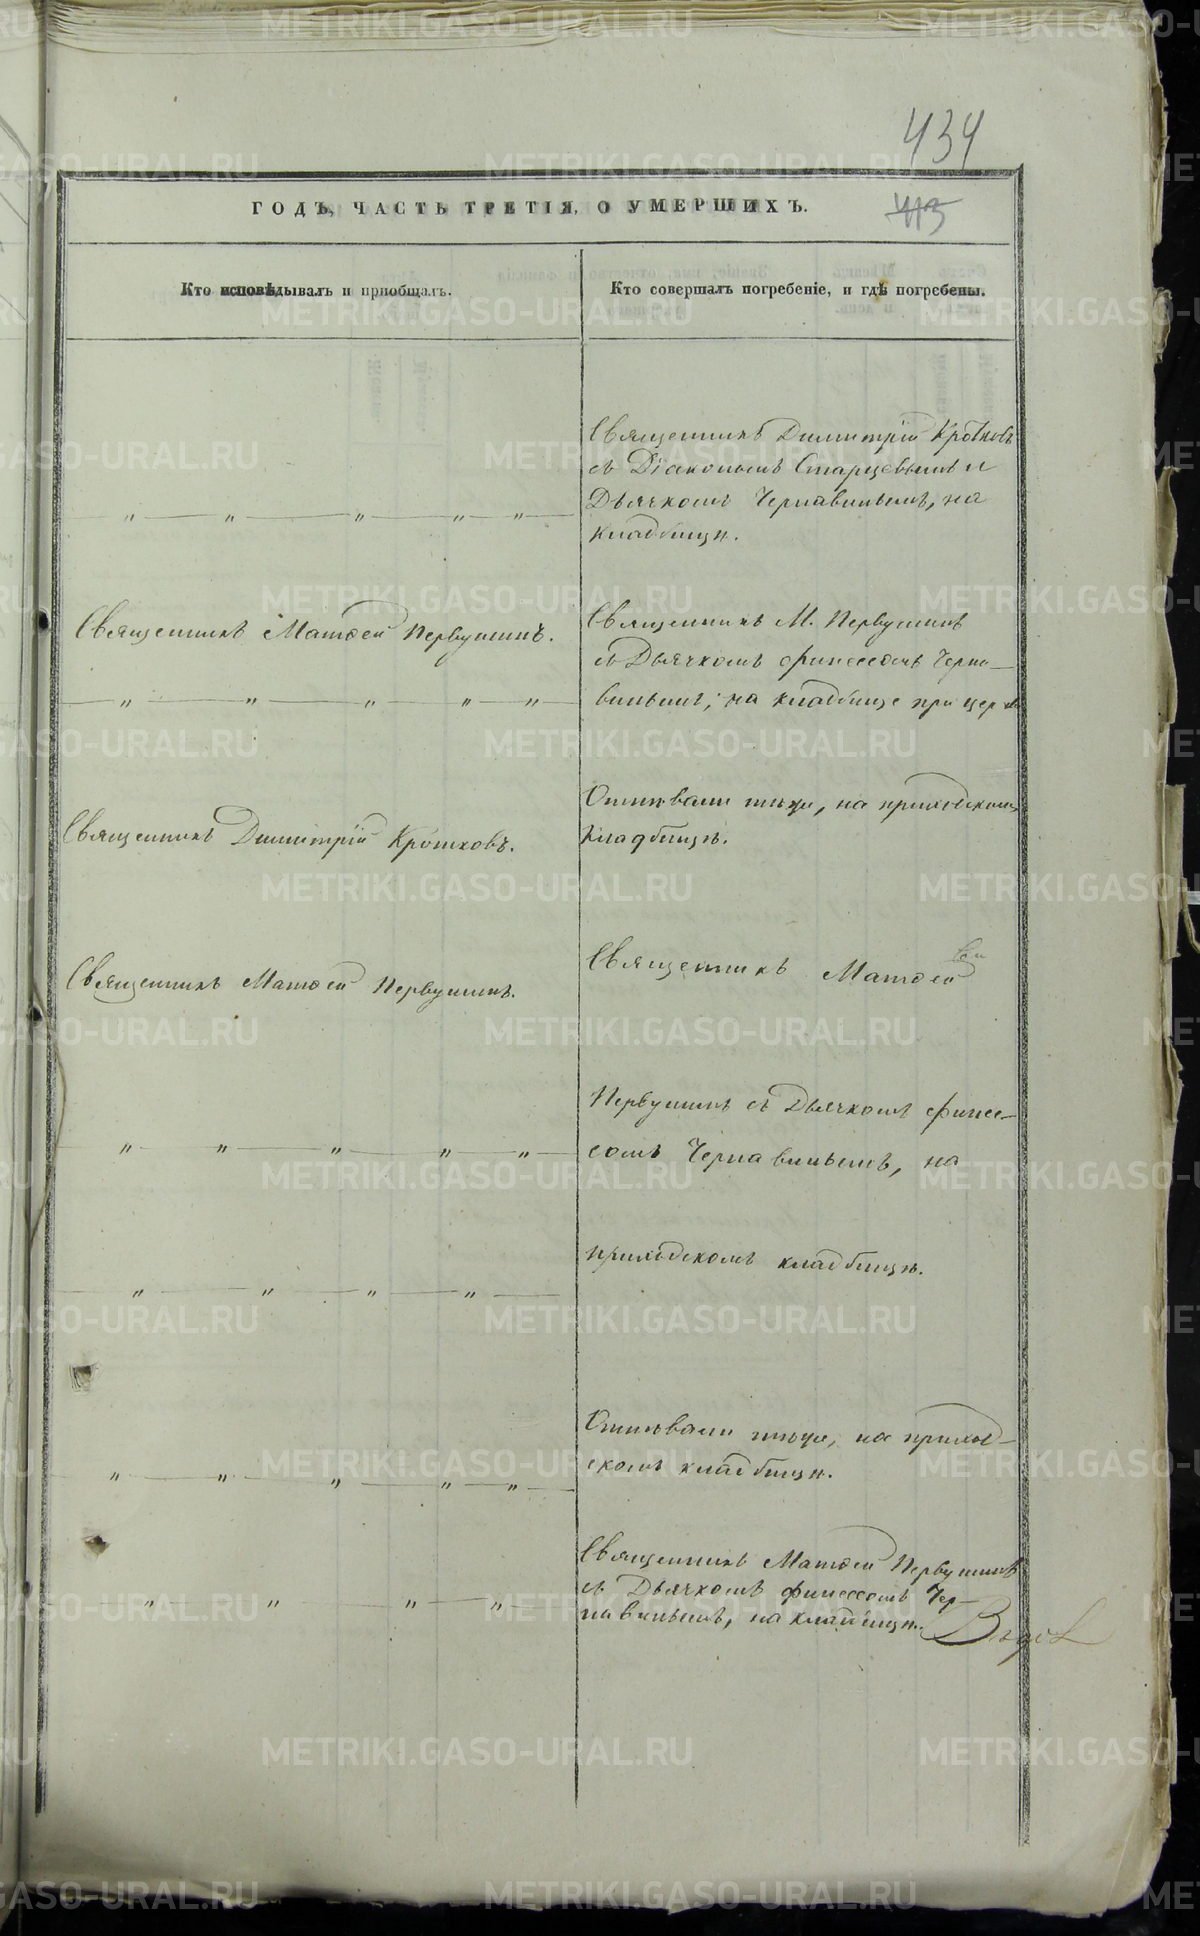 434
ГОДЪ, ЧАСТЬ ТРЕТІЯ, О УМЕРШИХЪ.
413
Кто исповѣдывалъ и пріобщалъ.
Кто совершалъ погребеніе, и гдѣ погребены.
Священникъ Димитрій Кротковъ
съ Діакономъ Старцевымъ и
Дьячкомъ Чернавинымъ, на
кладбищѣ.
Священникъ Матѳей Первушинъ.
Священникъ М. Первушинъ
съ Дьячкомъ Финеесомъ Черна-
винымъ, на кладбище при церкв
Священникъ Димитрій Кротковъ.
Отпѣвали тѣже, на приходскомъ
кладбищѣ.
Священникъ Матѳей Первушинъ.
Священникъ Матѳей
Первушинъ съ Дьячкомъ Финее-
сомъ Чернавинымъ, на
приходскомъ кладбищѣ.
Отпѣвали тѣже, на приход-
скомъ кладбищѣ.
Священникъ Матѳей Первушинъ
съ Дьячкомъ Финеесомъ Чер-
навинымъ, на кладбищѣ.
METRIKI.GASO-URAL.RU